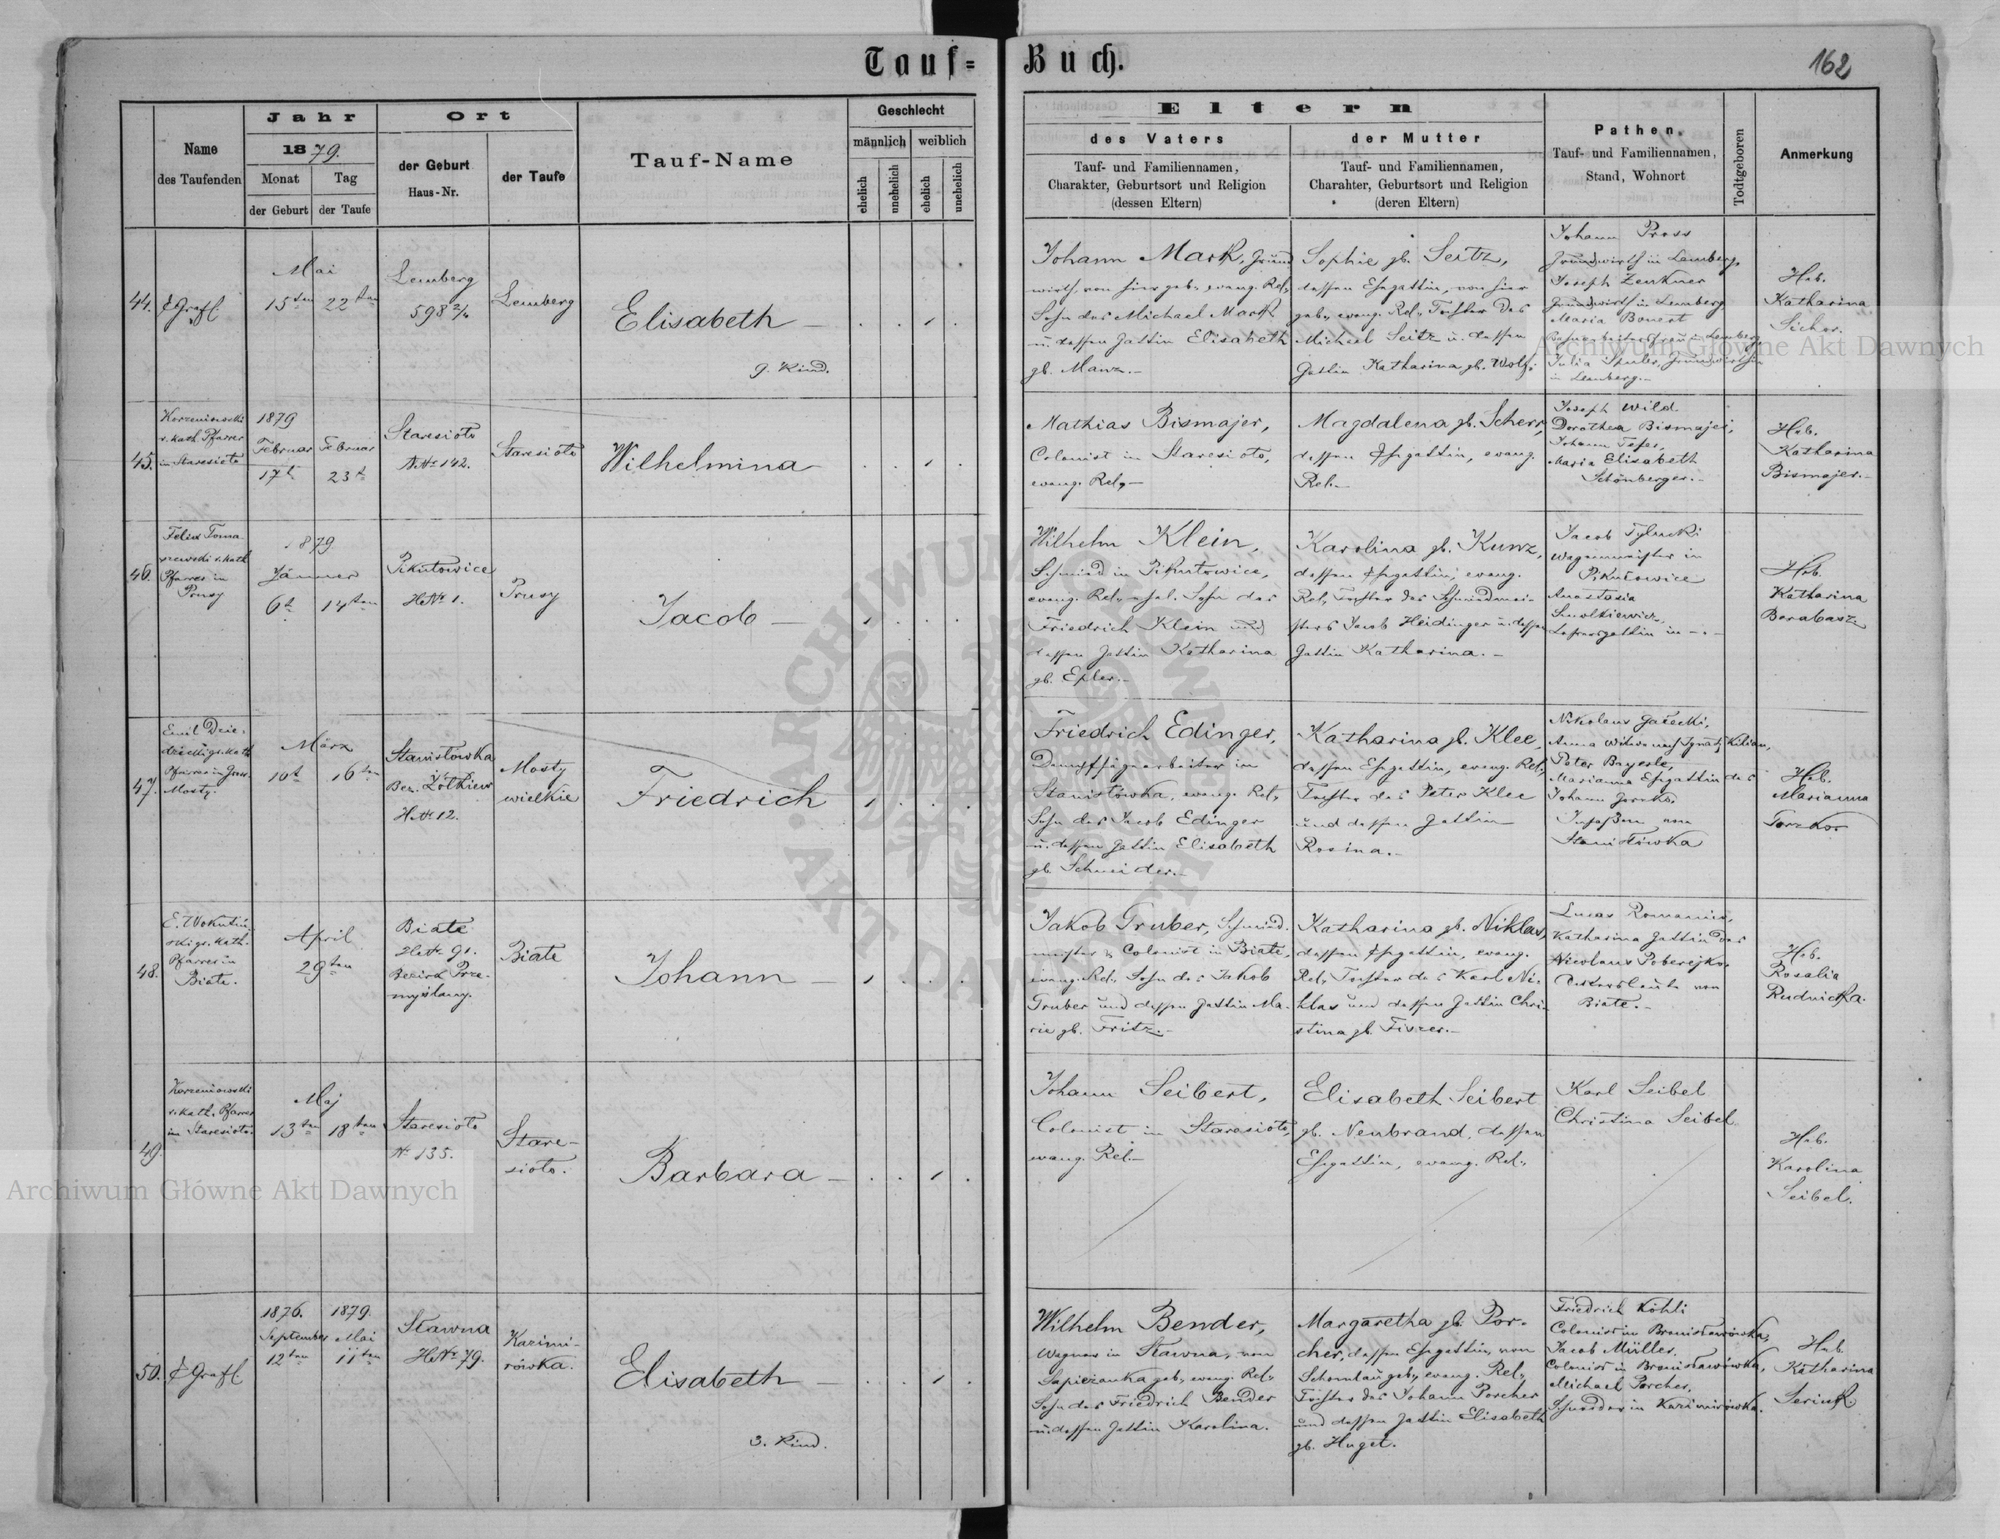 Tauf=
Buch.
162
Name
des Taufenden
Jahr
1879.
Monat
Tag
der Geburt
der Taufe
Ort
der Geburt
Haus-Nr.
der Taufe
Tauf-Name
Geschlecht
männlich
weiblich
ehelich
unehelich
ehelich
unehelich
Eltern
des Vaters
Tauf- und Familiennamen,
Charakter, Geburtsort und Religion
(dessen Eltern)
der Mutter
Tauf- und Familiennamen,
Charahter, Geburtsort und Religion
(deren Eltern)
Pathen.
Tauf- und Familiennamen,
Stand, Wohnort
Todtgeboren
Anmerkung
44.
Grafl.
Mai
15ten
22ten
Lemberg
598 2/4
Lemberg
Elisabeth
9. Kind.
Johann Mark, Grund
wirth von hier geb., evang. Rel.,
Sohn des Michael Mark
u. dessen Gattin Elisabeth
gb. Manz.—
Sophie gb. Seitz,
dessen Ehegattin, von hier
geb., evang. Rel., Tochter des
Michael Seitz u. dessen
Gattin Katharina, gb. Wolf.
Johann Pross
Grundwirth in Lemberg,
Joseph Zenkner
Grundwirth in Lemberg,
Maria Bonert
in Lemberg,
Julia Grundwirthin
in Lemberg.—
Heb.
Katharina
Sicher.
45.
Korzeniowski
r. kath. Pfarrer
in Staresioło
1879
Februar
Februar
17t
23t
Staresioło
Nº 142.
Staresioło
Wilhelmina
Mathias Bismajer,
Colonist in Staresioło,
evang. Rel.—
Magdalena gb. Scherr,
dessen Ehegattin, evang.
Rel.—
Joseph Wild
Dorothea Bismajer,
Johann
Maria Elisabeth
Schönberger.—
Heb.
Katharina
Bismajer.—
46.
Felix Toma
szewski r. kath
Pfarrer in
Prusy
1879
Jänner
6t
14ten
Pikułowice
HNº 1.
Prusy
Jacob
Wilhelm Klein,
Schmied in Pikułowice,
evang. Rel., ehel. Sohn des
Friedrich Klein und
dessen Gattin Katharina
gb. Epler.—
Karolina gb. Kunz,
dessen Ehegattin, evang.
Rel., Tochter des Schmiedmei-
sters Jacob Heidinger u. dessen
Gattin Katharina.—
Jacob Tylucki
Wagenmeister in
Pikułowice
Anastasia
Smolkiewicz,
gattin in — . —
Heb.
Katharina
Barabasz
47.
Emil Dzie-
dzicki gr. kath
Pfarrer in Gross-
Mosty.
März
10t
16ten
Stanisłówka
Bez. Żółkiew
HNº 12.
Mosty
wielkie
Friedrich
Friedrich Edinger,
Dampfsägearbeiter in
Stanisłówka, evang. Rel.,
Sohn des Jacob Edinger
u. dessen Gattin Elisabeth
gb. Schneider.—
Katharina gb. Klee,
dessen Ehegattin, evang. Rel.,
Tochter des Peter Klee
und dessen Gattin
Rosina.—
Nikolaus Gałecki,
Anna Witwe nach Ignatz Kilian,
Peter Bayerle,
Marianna Ehegattin des
Johann
Insaßen von
Stanisłówka
Heb.
Marianna
48.
gr. kath.
Pfarrer in
Białe.
April
29ten
Białe
HNº 91.
Bezirk Prze-
myślany.
Białe
Johann
Jakob Gruber, Schmied-
meister & Colonist in Białe,
evang. Rel., Sohn des Jakob
Gruber und dessen Gattin Ma-
rie gb. Fritz.—
Katharina gb. Niklas,
dessen Ehegattin, evang.
Rel., Tochter des Karl Ni-
klas und dessen Gattin Chri-
stina gb. Fiszer.—
Lucas Romaniw,
Katharina Gattin des
Nicolaus Poberejko.
Ackersleute von
Białe.—
Heb.
Rosalia
Rudnicka.
49.
Korzeniowski
r. kath. Pfarrer
in Staresioło.
Maj
13ten
18ten
Staresioło
Nº 135.
Stare-
sioło.
Barbara
Johann Seibert,
Colonist in Staresioło,
evang. Rel.—
Elisabeth Seibert
gb. Neubrand, dessen
Ehegattin, evang. Rel.
Karl Seibel
Christina Seibel
Heb.
Karolina
Seibel.
50.
Grafl.
1876.
September
12ten
1879.
Mai
11ten
Sławna
HNº 79.
Kazimi-
rówka.
Elisabeth
3. Kind.
Wilhelm Bender,
Wagner in Sławna, von
Sapieżanka geb., evang. Rel.,
Sohn des Friedrich Bender
u. dessen Gattin Karolina.
Margaretha gb. Por-
cher, dessen Ehegattin, von
Schönthau geb., evang. Rel.,
Tochter des Johann Porcher
und dessen Gattin Elisabeth
gb. Huget.
Friedrich Köhli
Colonist in Bronisławówka,
Jacob Müller,
Colonist in Bronisławówka,
Michael Porcher,
Schneider in Kazimirówka.
Heb.
Katharina
Archiwum Główne Akt Dawnych
Archiwum Główne Akt Dawnych